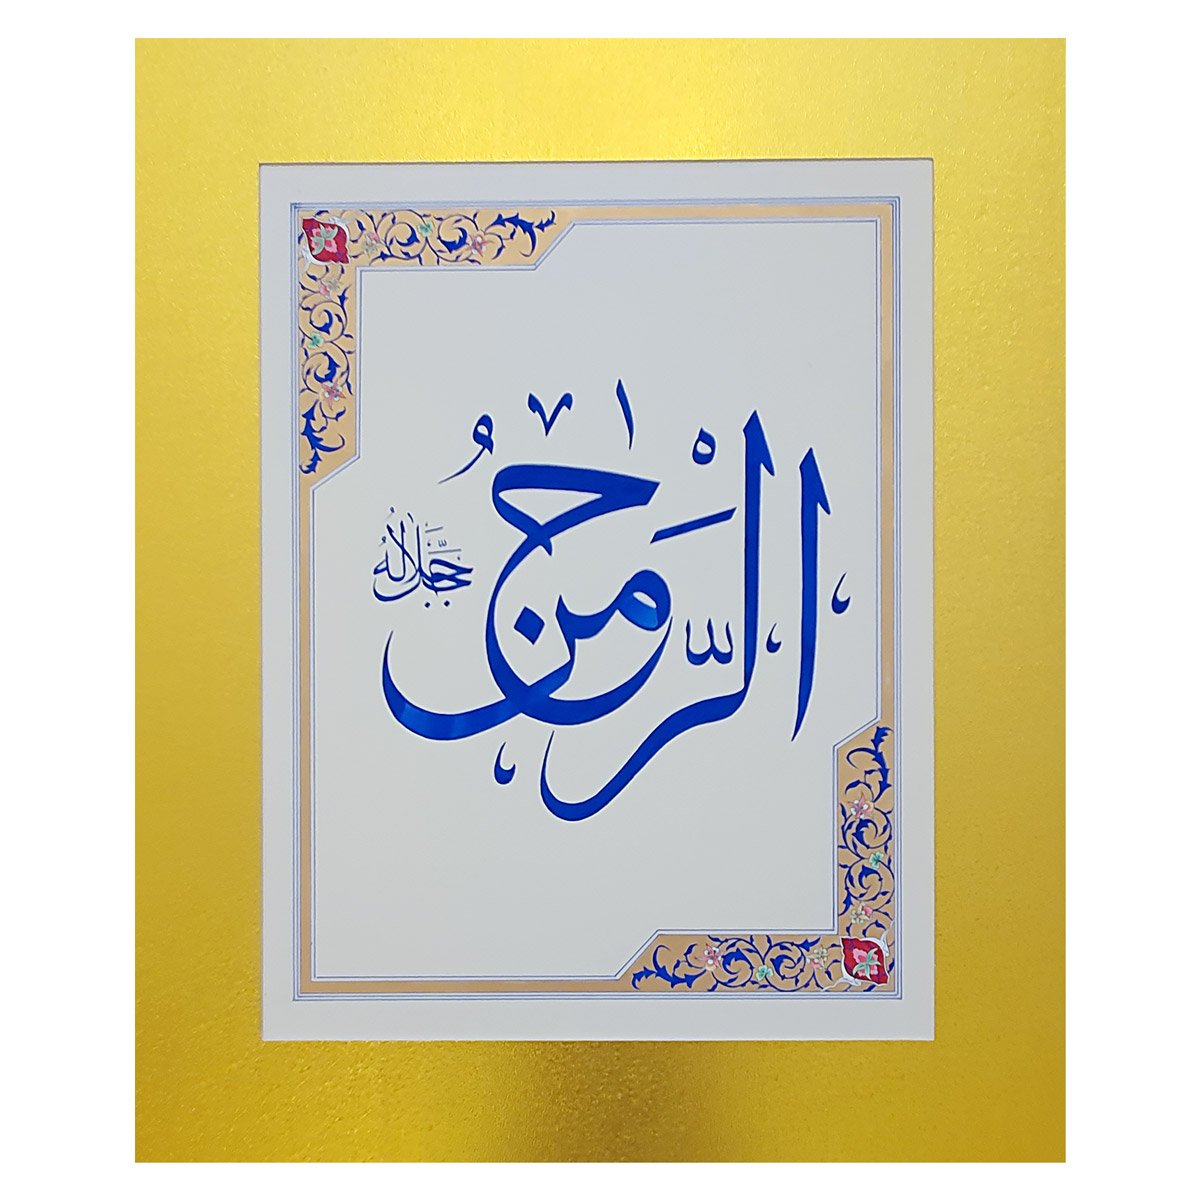 الرَّحْمٰنُ
جَلَّ جَلَالُهُ